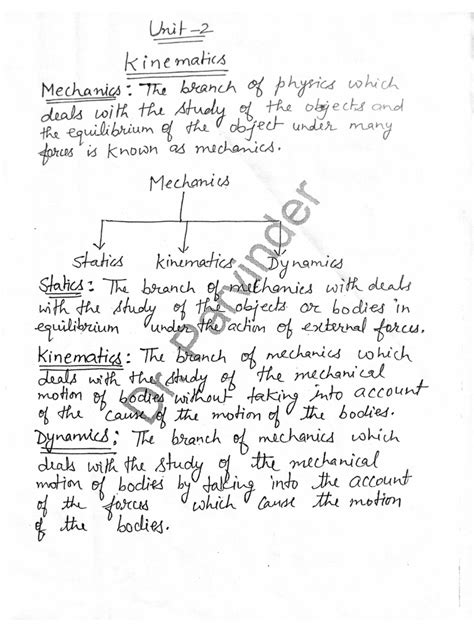 Unit-2
Kinematics
Mechanics: The branch of physics which
deals with the study of the objects and
the equilibrium of the object under many
forces is known as mechanics.
Mechanics
Statics Kinematics Dynamics
Statics: The branch of mechanics with deals
with the study of the objects or bodies in
equilibrium under the action of external forces.
Kinematics: The branch of mechanics which
deals with the study of the mechanical
motion of bodies without taking into account
of the cause of the motion of the bodies.
Dynamics: The branch of mechanics which
deals with the study of the mechanical
motion of bodies by taking into the account
of the forces which cause the motion
of the bodies.
Dr. Parvinder